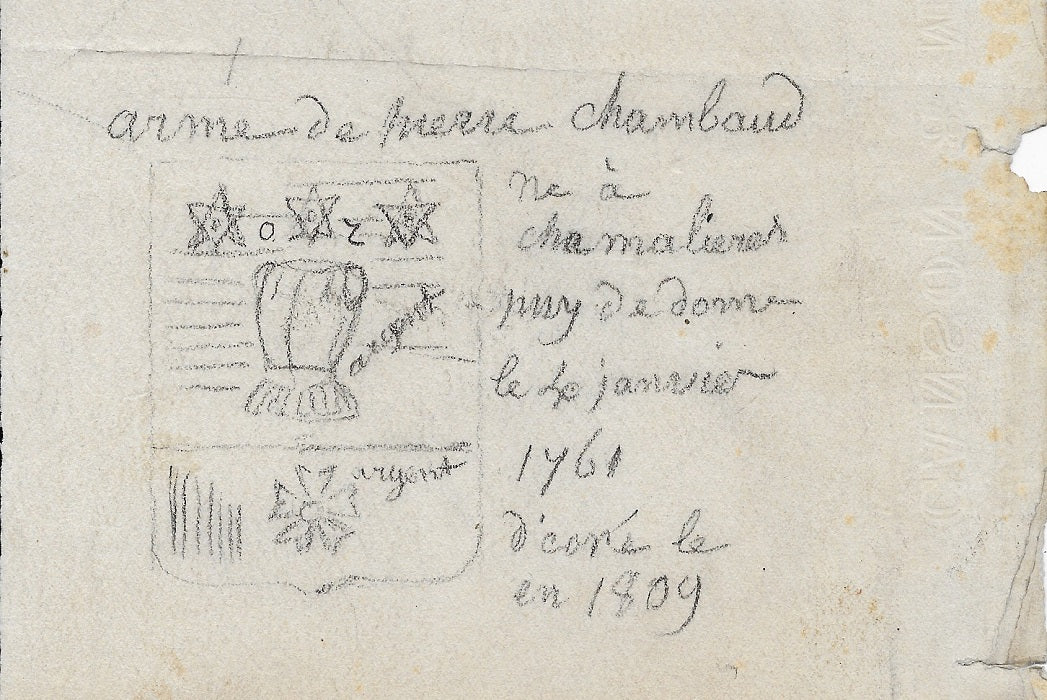 arme de pierre chambaud
ne à
chamalieres
puy de dome
le 4 janvier
1761
d'coré le
en 1809
o r
argent
argent